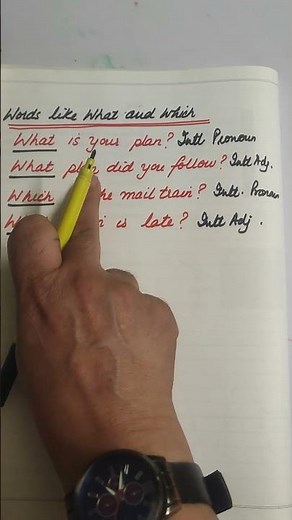 Words like What and Which
What is your plan? Intl Pronoun
What plan did you follow? Intl Adj.
Which the mail train? Intl. Pronoun
is late? Intl Adj.